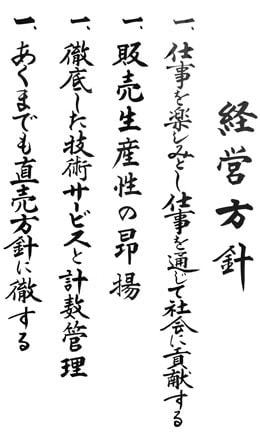 経営方針
一、仕事を楽しみとし仕事を通じて社会に貢献する
一、販売生産性の昂揚
一、徹底した技術サービスと計数管理
一、あくまでも直売方針に徹する